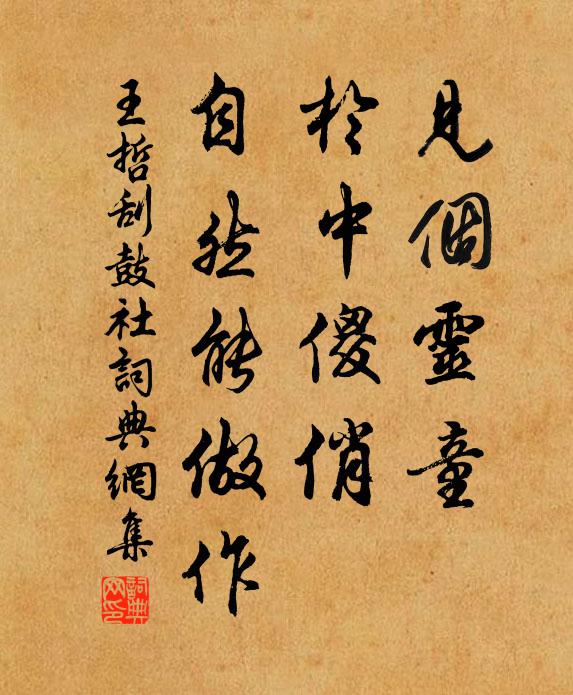 見個靈童
於中傻俏
自然能做作
王哲刮鼓社詞典網集
詞典網印